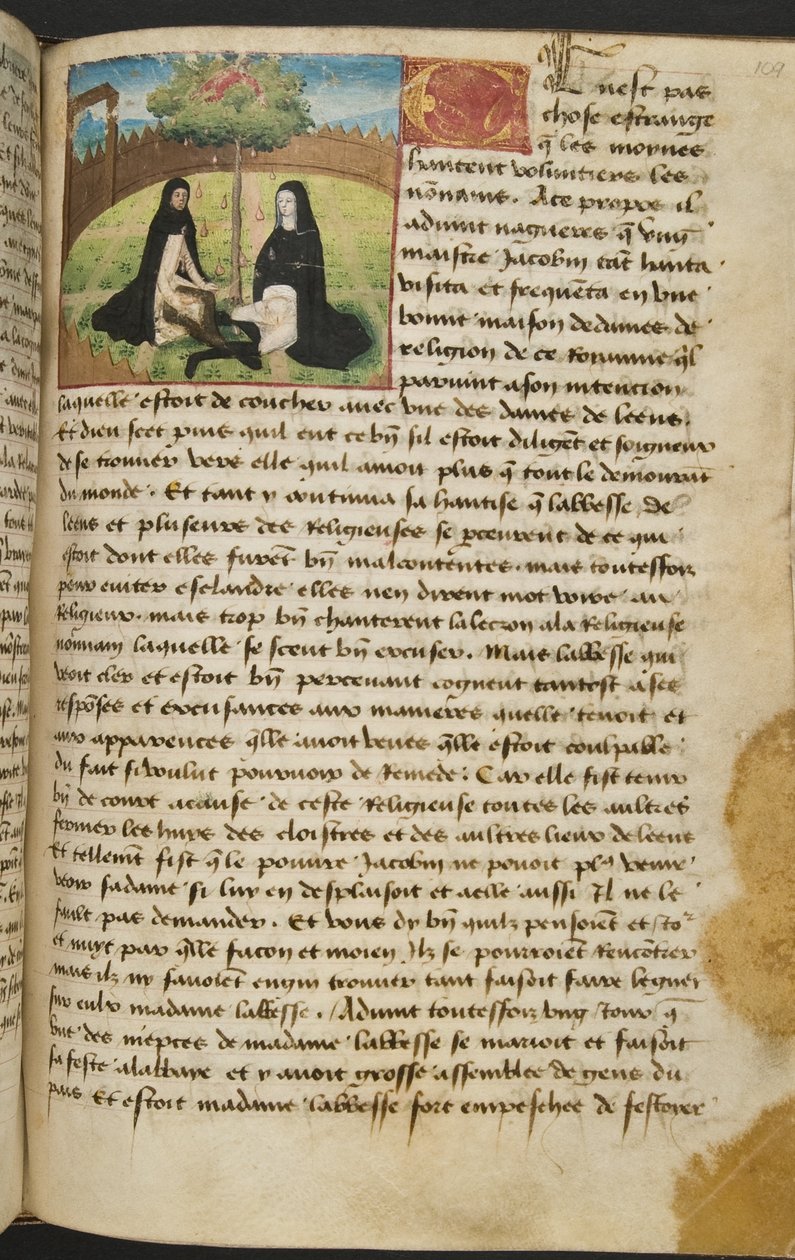 109
Ce nest pas
chose estrange
q̃ les moynes
hantent voluntiers les
nōnains. A ce propos il
aduint nagueres q̃ vng
maistre Jacobin tāt hanta
visita et frequēta en vne
bonne maison de dames de
religion de ce Royaume q̃l
paruint a son intencion
laquelle estoit de coucher auec vne des dames de leens.
Et dieu scet puis quil eut ce bn̄ sil estoit diligēt et soigneux
de se trouuer vers elle quil amoit plus q̃ tout le demourāt
du monde. Et tant y continua sa hantise q̃ labbesse de
leens et pluseurs des Religieuses se pceurent de ce qui
estoit dont elles furēt bn̄ malcontentes. mais toutesfoiz
pour euiter esclandre elles nen dirent mot voire au
Religieux. mais trop bn̄ chanterent la leczon a la Religieuse
nōnain laquelle se sceut bn̄ excuser. Mais labbesse qui
veoit cler et estoit bn̄ perceuant cogneut tantost a ses
respōses et excusances aux manieres quelle tenoit et
aux apparences q̃lle auoit veues q̃lle estoit coulpable
du fait si voulut pourueoir de Remede. Car elle fist tenir
bn̄ de court a cause de ceste Religieuse toutes les aultres
fermer les huys des cloistres et des aultres lieux de leens
Et tellemēt fist q̃ le poure Jacobin ne pouoit pl9 venir
veoir sa dame si luy en desplaisoit et a elle aussi Il ne le
fault pas demander. Et vous dy bn̄ quilz pensoiēt et Jor
et nuyt par q̃lle facon et moien Ilz se pourroiēt Rencōtrer
mais ilz ny sauoiēt engin trouuer tant faisoit faire le guet
sur eulx madame labbesse. Aduint toutesfoiz vng Jour q̃
vne des niepces de madame labbesse se marioit et faisoit
sa feste a labbaye et y auoit grosse assemblee de gens du
pais Et estoit madame labbesse fort empeschee de festoyer